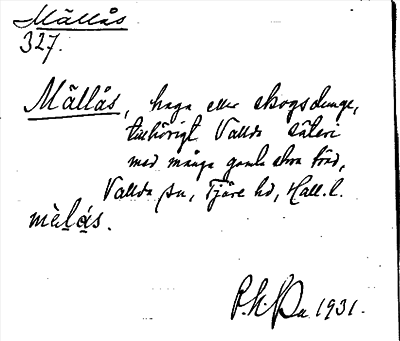 Mällås
327.
Mällås, haga eller skogsdunge,
tillhörigt Vallda säteri
med många gamla stora träd,
Vallda sn, Fjäre hd, Hall. l.
mèlás.
1931.